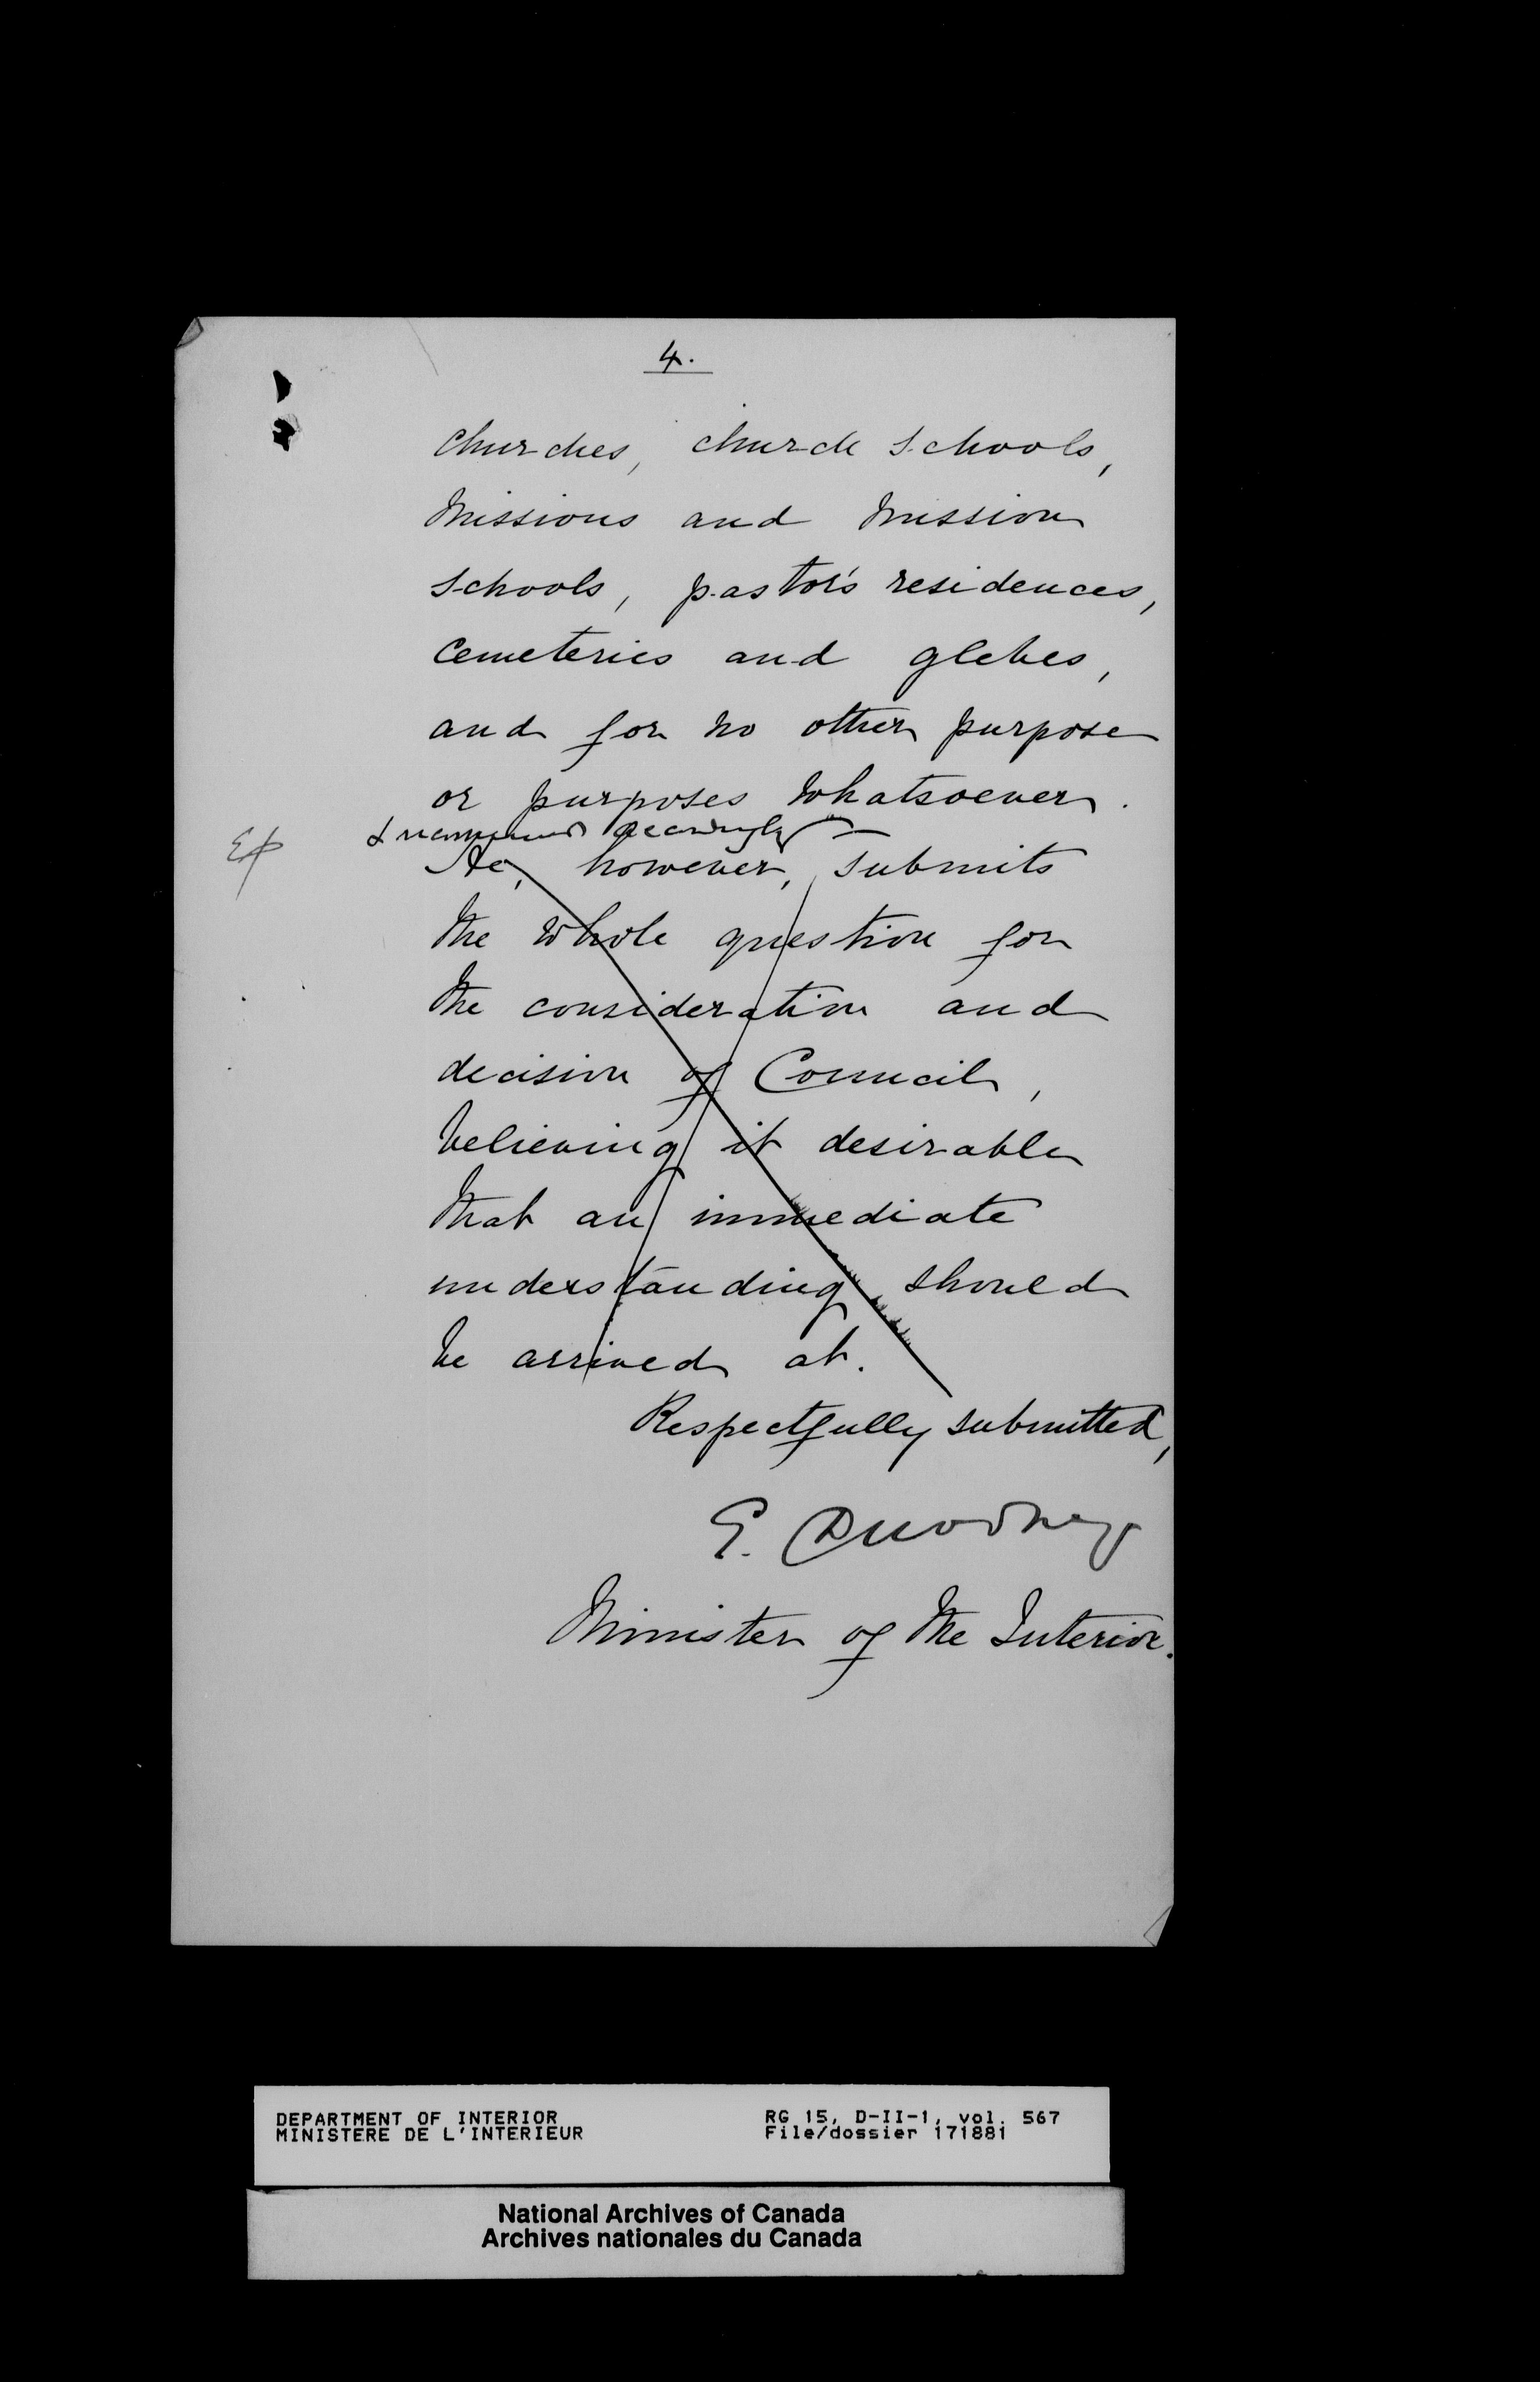 4.
churches, church schools,
missions and mission
schools, pastor's residences,
cemeteries and glebes,
and for no other purpose
or purposes whatsoever.
& recommends accordingly
He, however, submits
the whole question for
the consideration and
decision of Council,
believing it desirable
that an immediate
understanding should
be arrived at.
Respectfully submitted,
E. Dewdney
Minister of the Interior.
DEPARTMENT OF INTERIOR
MINISTERE DE L'INTERIEUR
RG 15, D-II-1, vol. 567
File/dossier 171881
National Archives of Canada
Archives nationales du Canada